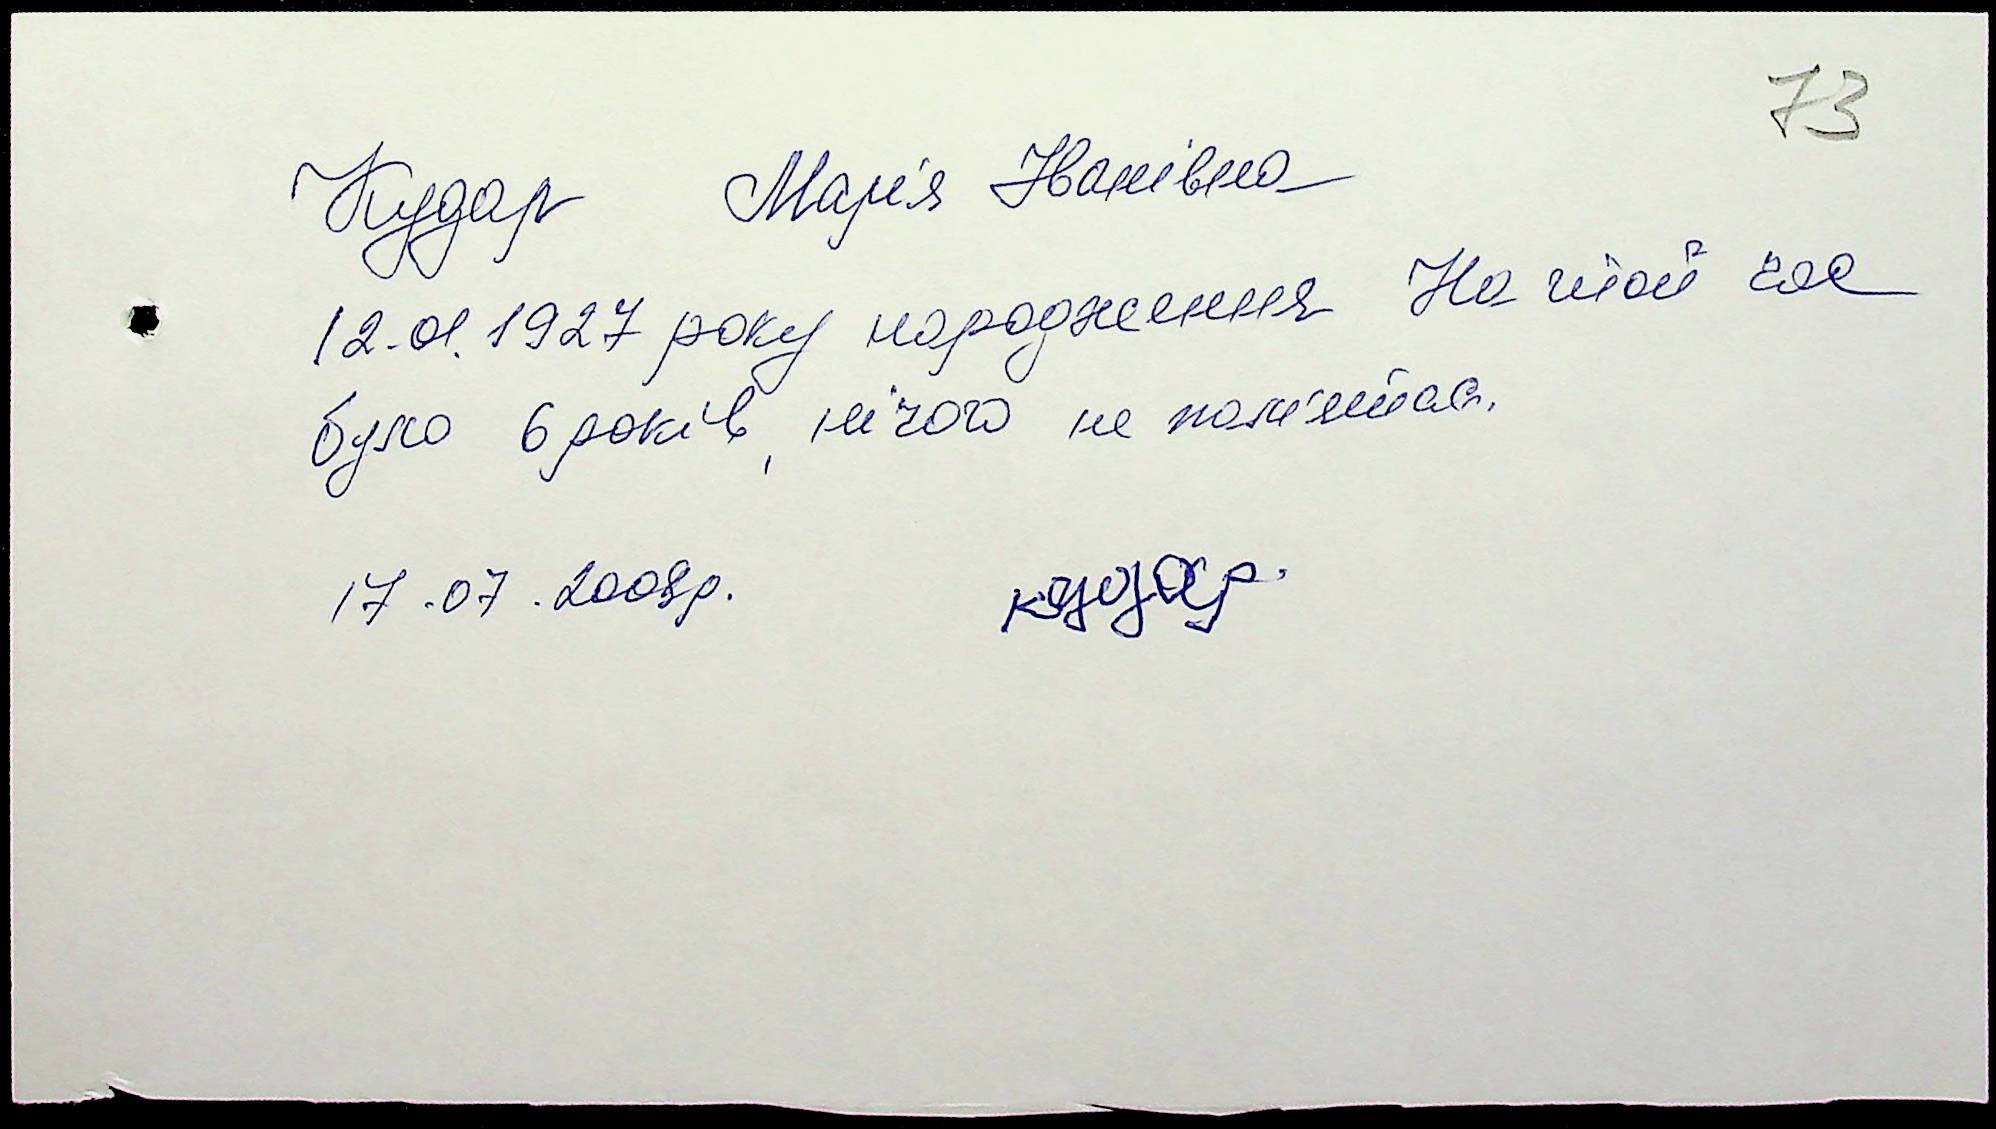 73
Кудар Марія Іванівна
12.01.1927 року народження На той час
було 6 років, нічого не пам'ятає.
17.07.2008р. Кудар.